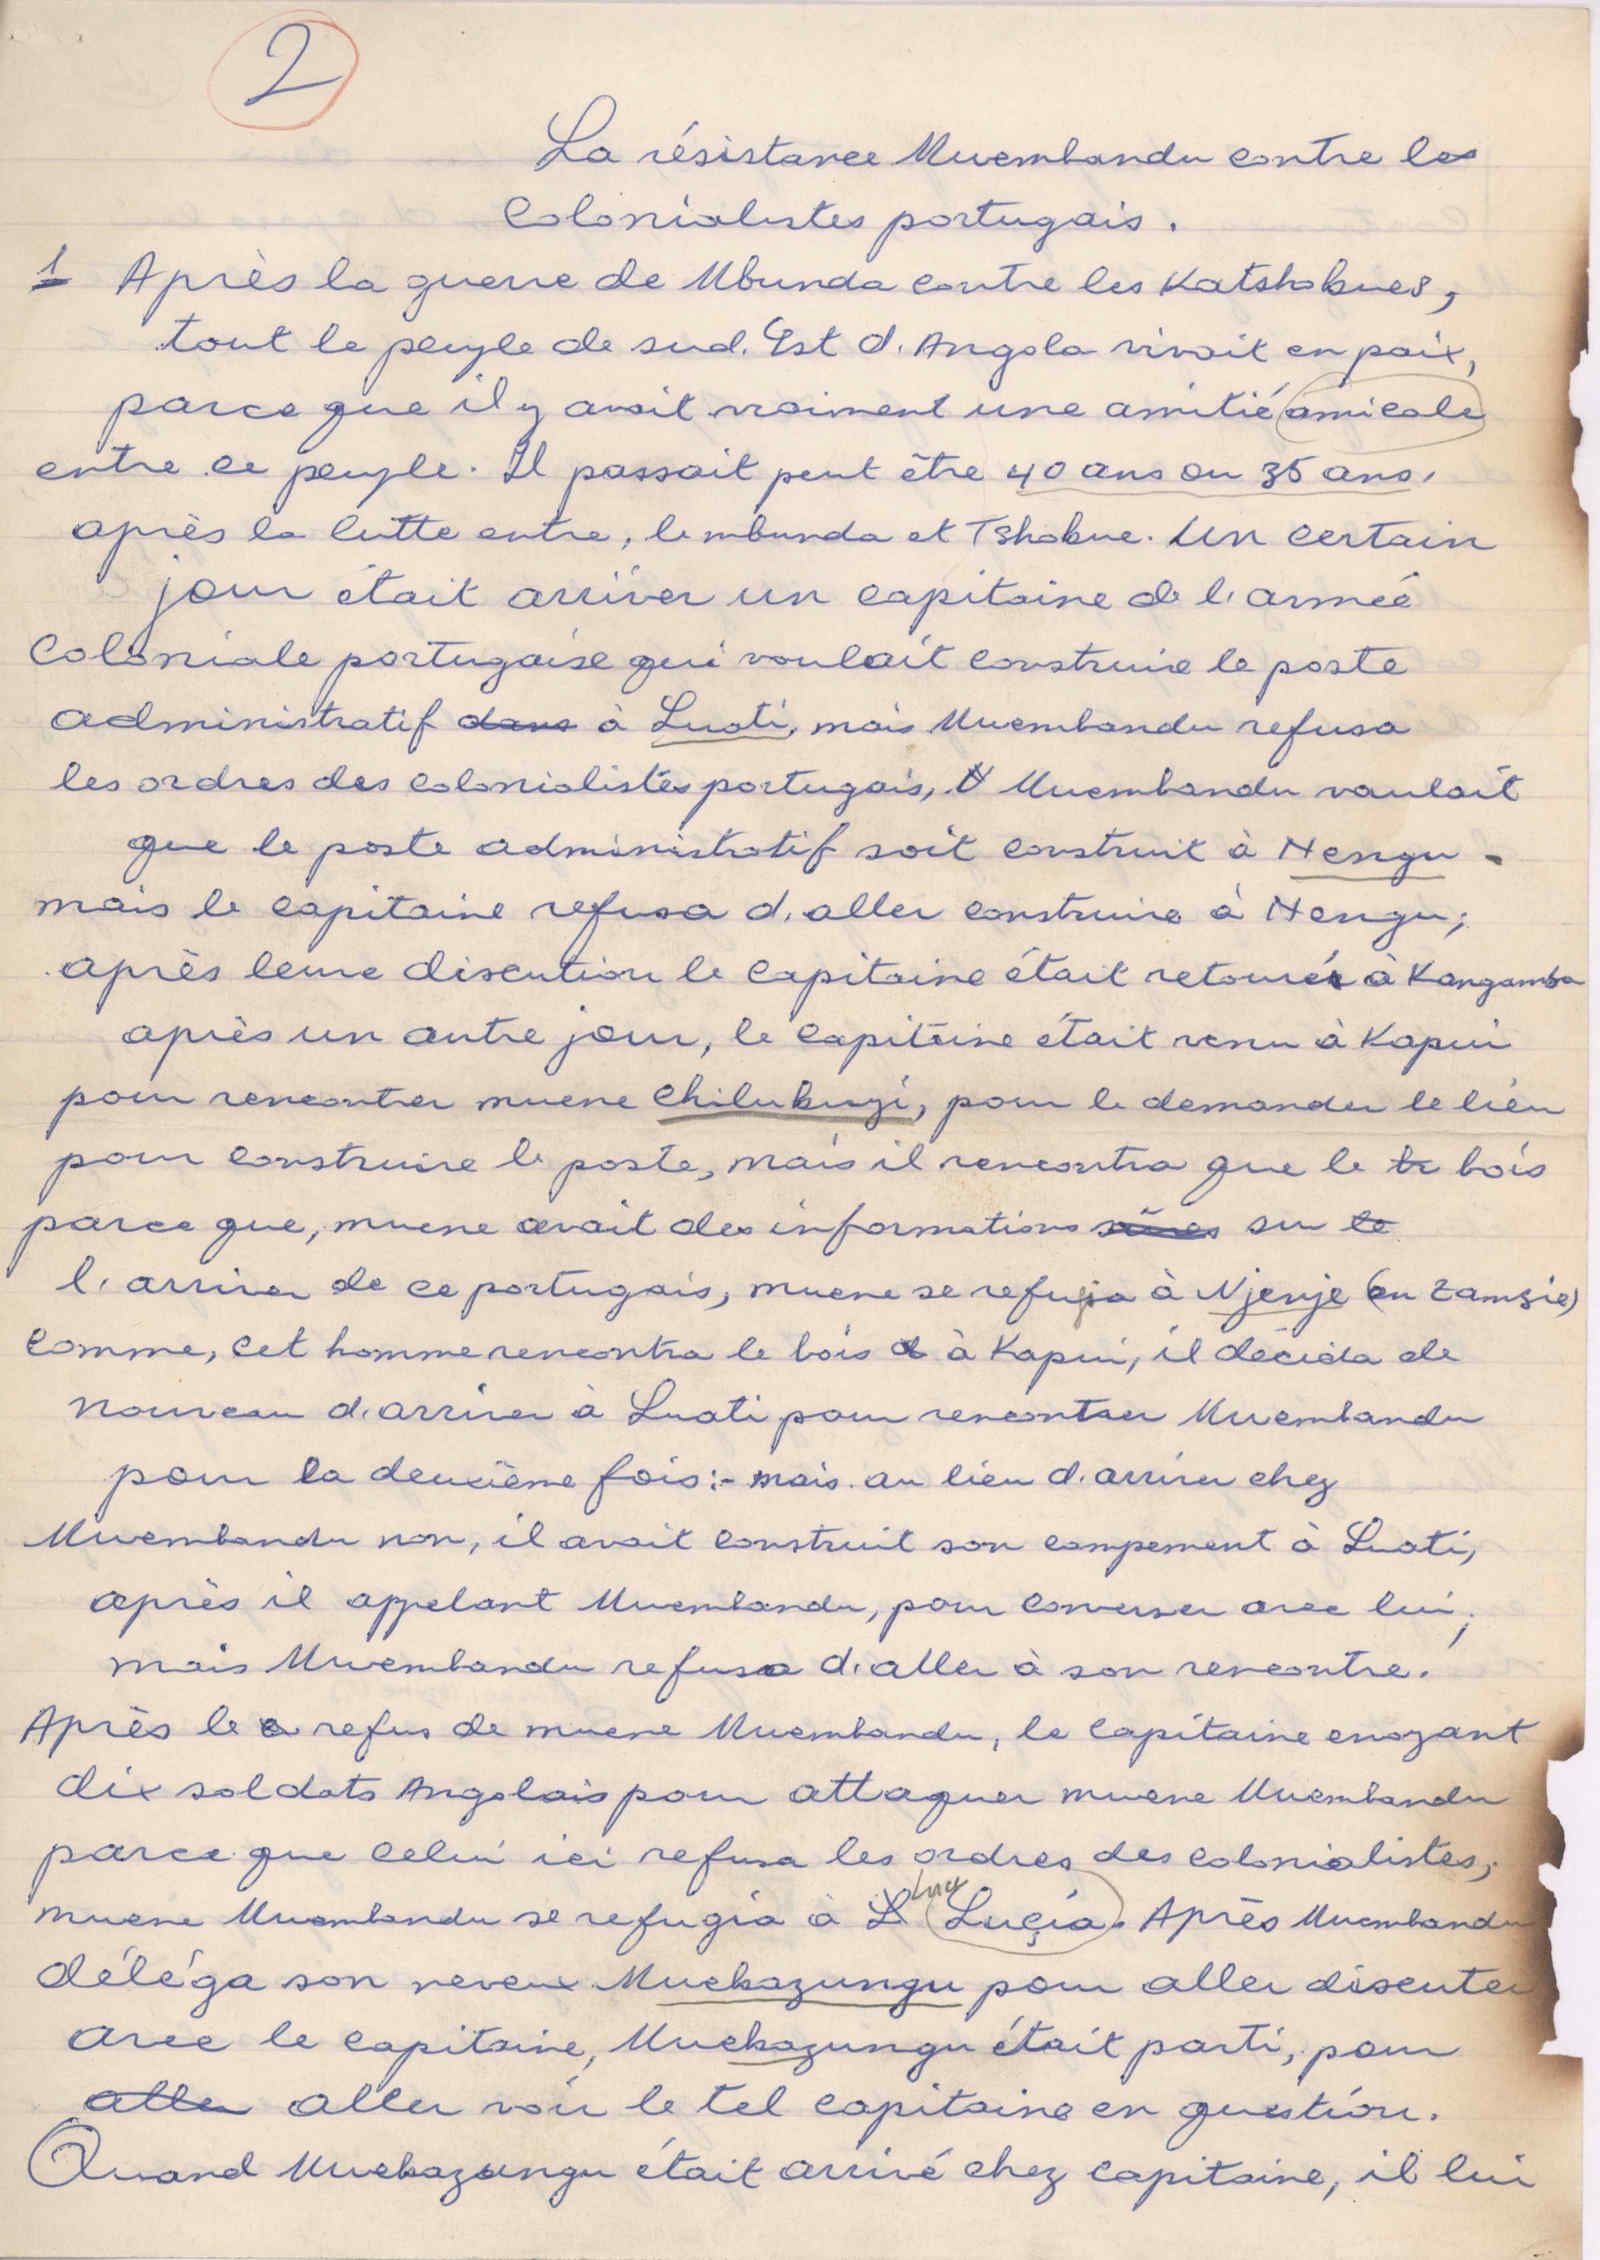 2
La résistance Muembandu contre les
Colonialistes portugais.
1 Après la guerre de Mbunda contre les Katshokues,
tout le peuple de sud. Est d'Angola vivait en paix,
parce que il y avait vraiment une amitié amicale
entre ce peuple. Il passait peut être 40 ans ou 35 ans,
après la lutte entre, le mbunda et Tshokue. Un certain
jour était arriver un capitaine de l'armée
Coloniale portugaise qui voulait construire le poste
administratif dans à Luati, mais Muembandu refusa
les ordres des colonialistes portugais, Muembandu voulait
que le poste administratif soit construit à Nengu -
mais le capitaine refusa d'aller construire à Nengu;
après leure discution le capitaine était retourér à Kangamba
après un autre jour, le capitaine était venu à Kapui
pour rencontrer muene Chilukuyi, pour le demander le lieu
pour construire le poste, mais il rencontra que le bois
parce que, muene avait des informations sûres sur le
l'arriver de ce portugais, muene se refugia à Njenje (en Zambie)
Comme, cet homme rencontra le bois à Kapui, il décida de
nouveau d'arriver à Luati pour rencontrer Muembandu
pour la deuxième fois:- mais au lieu d'arriver chez
Muembandu non, il avait construit son campement à Luati,
après il appelant Muembandu, pour converser avec lui,
mais Muembandu refusa d'aller à son rencontre.
Après le refus de muene Muembandu, le capitaine envoyant
dix soldats Angolais pour attaquer muene Muembandu
parce que celui ici refusa les ordres des colonialistes,
muene Muembandu se refugia à L Luçia. Après Muembandu
déléga son neveux Muekazungu pour aller discuter
avec le capitaine, Muekazungu était parti, pour
aller aller voir le tel capitaine en question.
Quand Muekazungu était arrivé chez capitaine, il lui